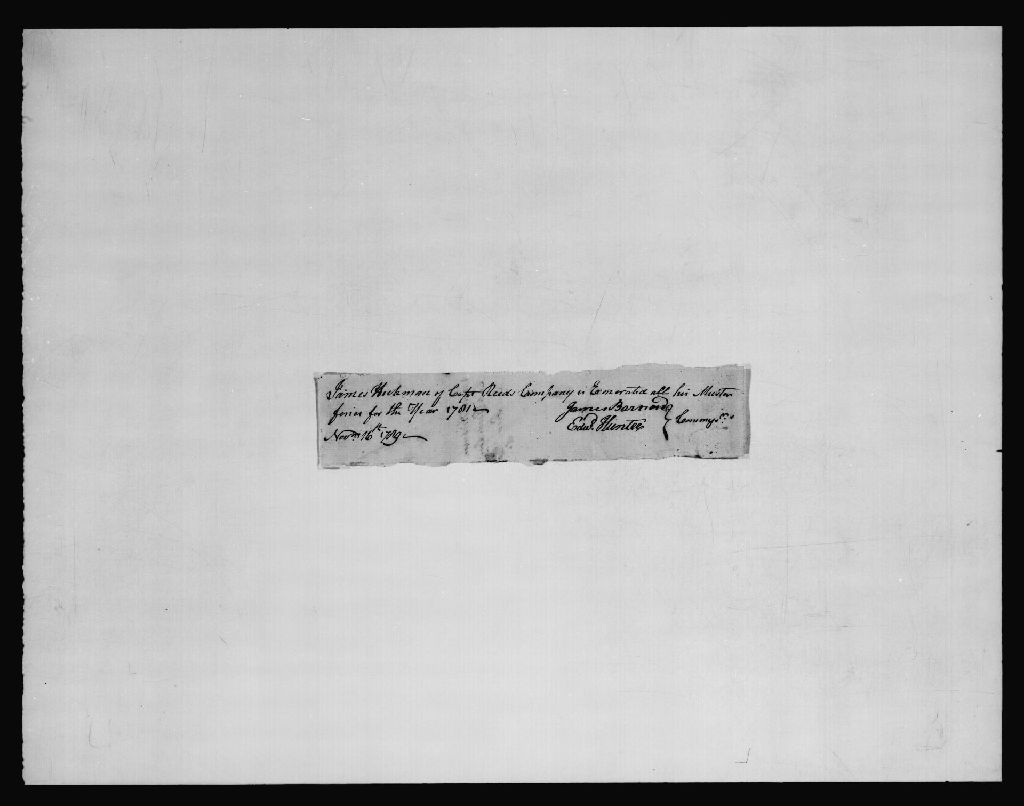 James Hickman of Capt Reeds Company is Exonerated all his Muster
fines for the Year 1781
James Barron
Edwd. Hunter } Commyss.
Novm. 16th 1789